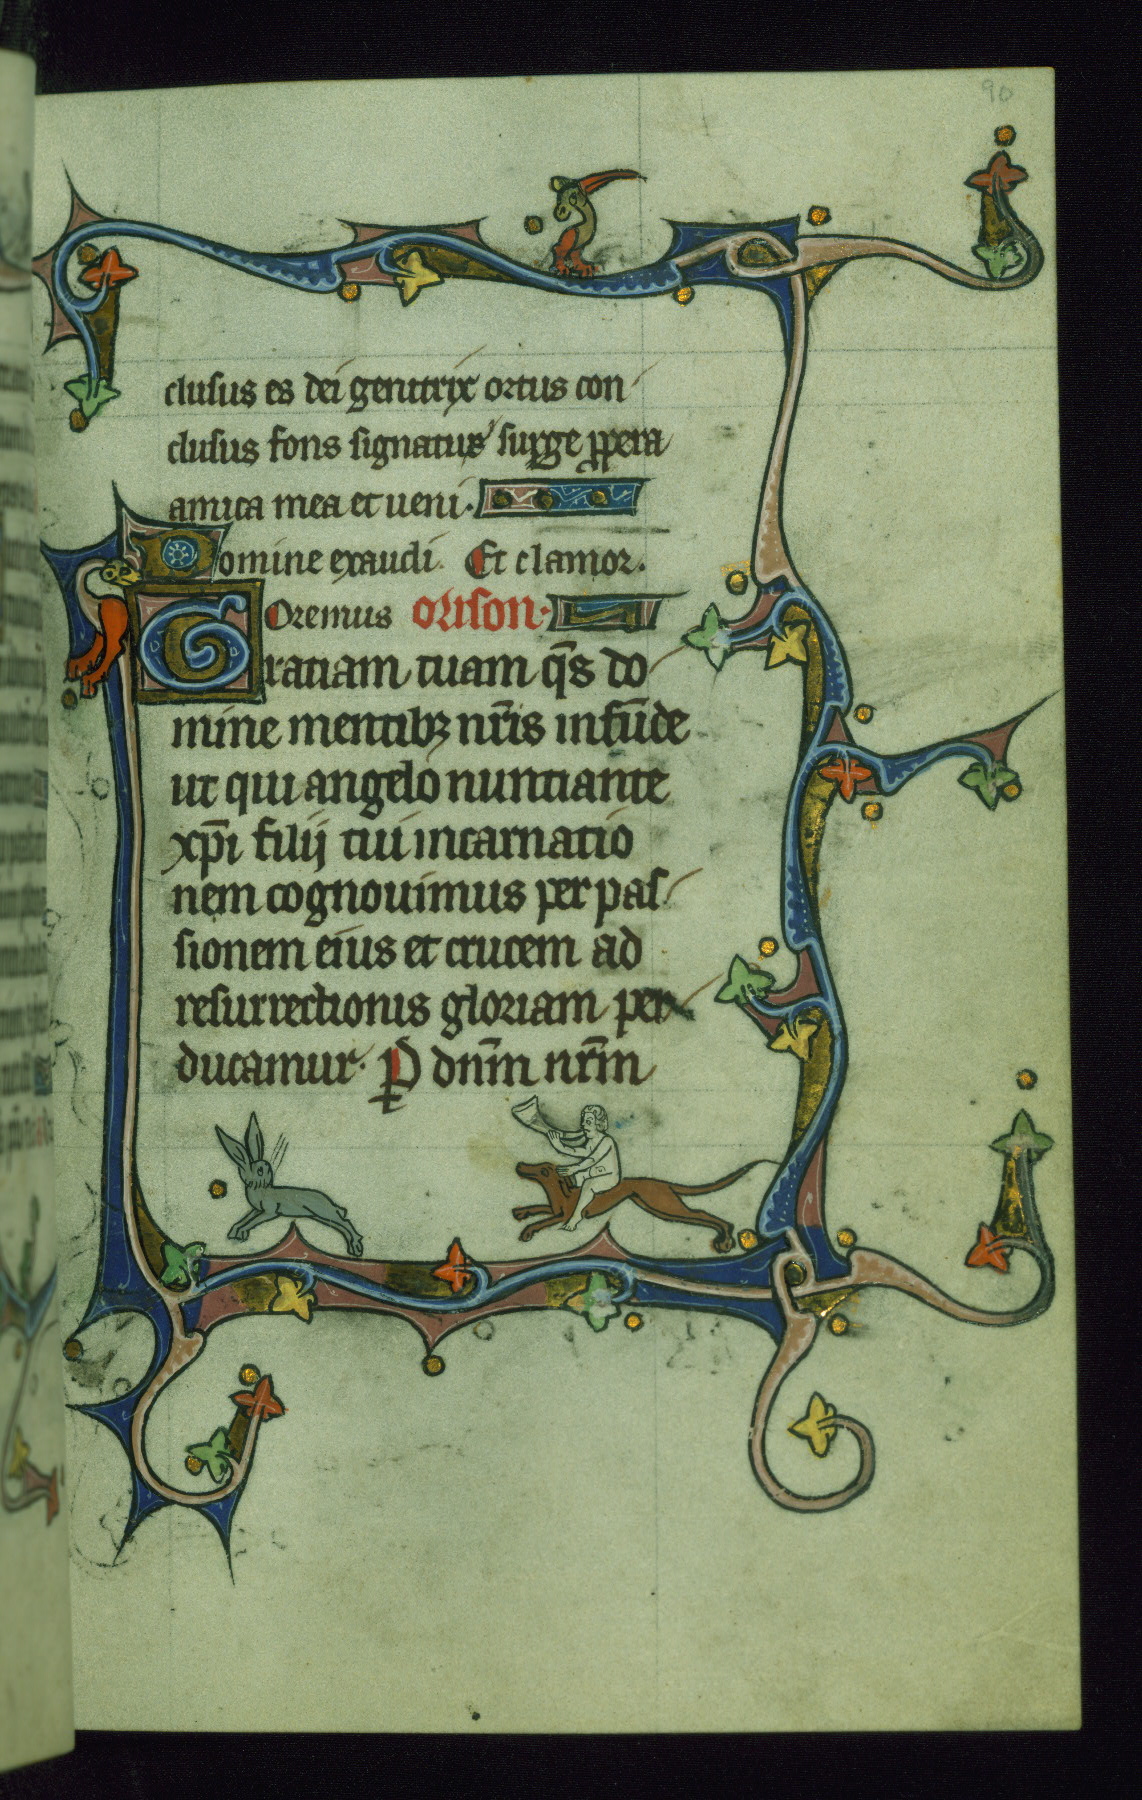 90
clusus es dei genitrix ortus con
clusus fons signatus surge ꝓpera
amica mea et ueni.
Domine exaudi. Et clamor.
Oremus orison.
Gratiam tuam q̄s do
mine mentibꝫ nr̄is infūde
ut qui angelo nuntiante
xp̄i filij tui incarnatio
nem cognouimus per pas
sionem eius et crucem ad
resurrectionis gloriam per
ducamur. P dn̄m nr̄m